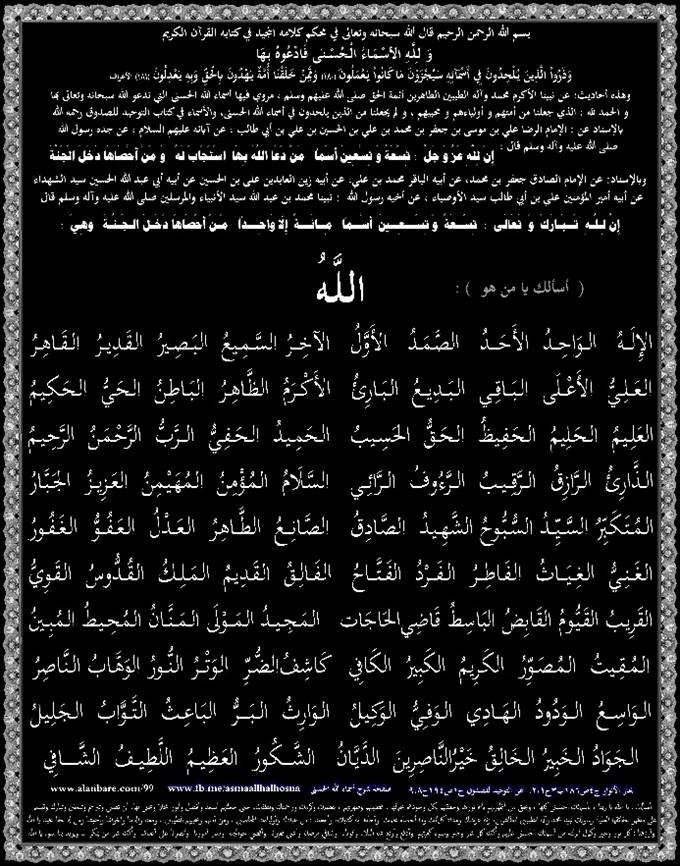 بسم الله الرحمن الرحيم قال الله سبحانه وتعالى في محكم كلامه المجيد في كتابه القرآن الكريم
وَ لِلَّهِ الأَسْمَاءُ الْحُسْنَى فَادْعُوهُ بِهَا
وَذَرُواْ الَّذِينَ يُلْحِدُونَ فِي أَسْمَآئِهِ سَيُجْزَوْنَ مَا كَانُواْ يَعْمَلُونَ (180) وَمِمَّنْ خَلَقْنَا أُمَّةٌ يَهْدُونَ بِالْحَقِّ وَبِهِ يَعْدِلُونَ (181) الأعراف
وهذه أحاديث: عن نبينا الأكرم محمد وآله الطيبين الطاهرين أئمة الحق صلى الله عليهم وسلم ، مروي فيها اسماء الله الحسنى التي ندعو الله سبحانه وتعالى بها
و الحمد لله : الذي جعلنا من أمتهم و أولياءهم و محبيهم ، و لم يجعلنا من الذين يلحدون في أسماء الله الحسنى، والأسماء في كتاب التوحيد للصدوق رحمه الله
بالإسناد عن : الإمام الرضا علي بن موسى بن جعفر بن محمد بن علي بن الحسين بن علي بن أبي طالب ، عن آبائه عليهم السلام ، عن جده رسول الله
صلى الله عليه وآله وسلم قال :
إن لله عز و جل : تسعة و تسعين أسما من دعا الله بها استجاب له و من أحصاها دخل الجنة
وبالإسناد: عن الإمام الصادق جعفر بن محمد، عن أبيه الباقر محمد بن علي، عن أبيه زين العابدين علي بن الحسين عن أبيه أبي عبد الله الحسين سيد الشهداء
عن أبيه أمير المؤمنين علي بن أبي طالب سيد الأوصياء ، عن أخيه رسول الله : نبينا محمد بن عبد الله سيد الأنبياء والمرسلين صلى الله عليه وآله وسلم قال
إن لله تبارك و تعالى : تسعة و تسعين أسما مائة إلا واحدا من أحصاها دخل الجنة وهي :
( أسألك يا من هو ) : اللَّهُ
الإِلَهُ الوَاحِدُ الأَحَدُ الصَّمَدُ الأَوَّلُ الآخِرُ السَّمِيعُ البَصِيرُ القَدِيرُ القَاهِرُ
العَلِيُّ الأَعْلَى البَاقِي البَدِيعُ البَارِئُ الأَكْرَمُ الظَّاهِرُ البَاطِنُ الحَيُّ الحَكِيمُ
العَلِيمُ الحَلِيمُ الحَفِيظُ الحَقُّ الحَسِيبُ الحَمِيدُ الحَفِيُّ الرَّبُّ الرَّحْمَنُ الرَّحِيمُ
الذَّارِئُ الرَّازِقُ الرَّقِيبُ الرَّءُوفُ الرَّائِي السَّلَامُ المُؤْمِنُ المُهَيْمِنُ العَزِيزُ الجَبَّارُ
المُتَكَبِّرُ السَّيِّدُ السُّبُّوحُ الشَّهِيدُ الصَّادِقُ الصَّانِعُ الطَّاهِرُ العَدْلُ العَفُوُّ الغَفُورُ
الغَنِيُّ الغِيَاثُ الفَاطِرُ الفَرْدُ الفَتَّاحُ الفَالِقُ القَدِيمُ المَلِكُ القُدُّوسُ القَوِيُّ
القَرِيبُ القَيُّومُ القَابِضُ البَاسِطُ قَاضِي الحَاجَات المَجِيدُ المَوْلَى المَنَّانُ المُحِيطُ المُبِينُ
المُقِيتُ المُصَوِّرُ الكَرِيمُ الكَبِيرُ الكَافِي كَاشِفُ الضُّرِّ الوَتْرُ النُّورُ الوَهَّابُ النَّاصِرُ
الوَاسِعُ الوَدُودُ الهَادِي الوَفِيُّ الوَكِيلُ الوَارِثُ البَرُّ البَاعِثُ التَّوَّابُ الجَلِيلُ
الجَوَادُ الخَبِيرُ الخَالِقُ خَيْرُ النَّاصِرِينَ الدَّيَّانُ الشَّكُورُ العَظِيمُ اللَّطِيفُ الشَّافِي
صفحة شرح أسماء الله الحسنى www.fb.me/asmaallhalhosna www.alanbare.com/99